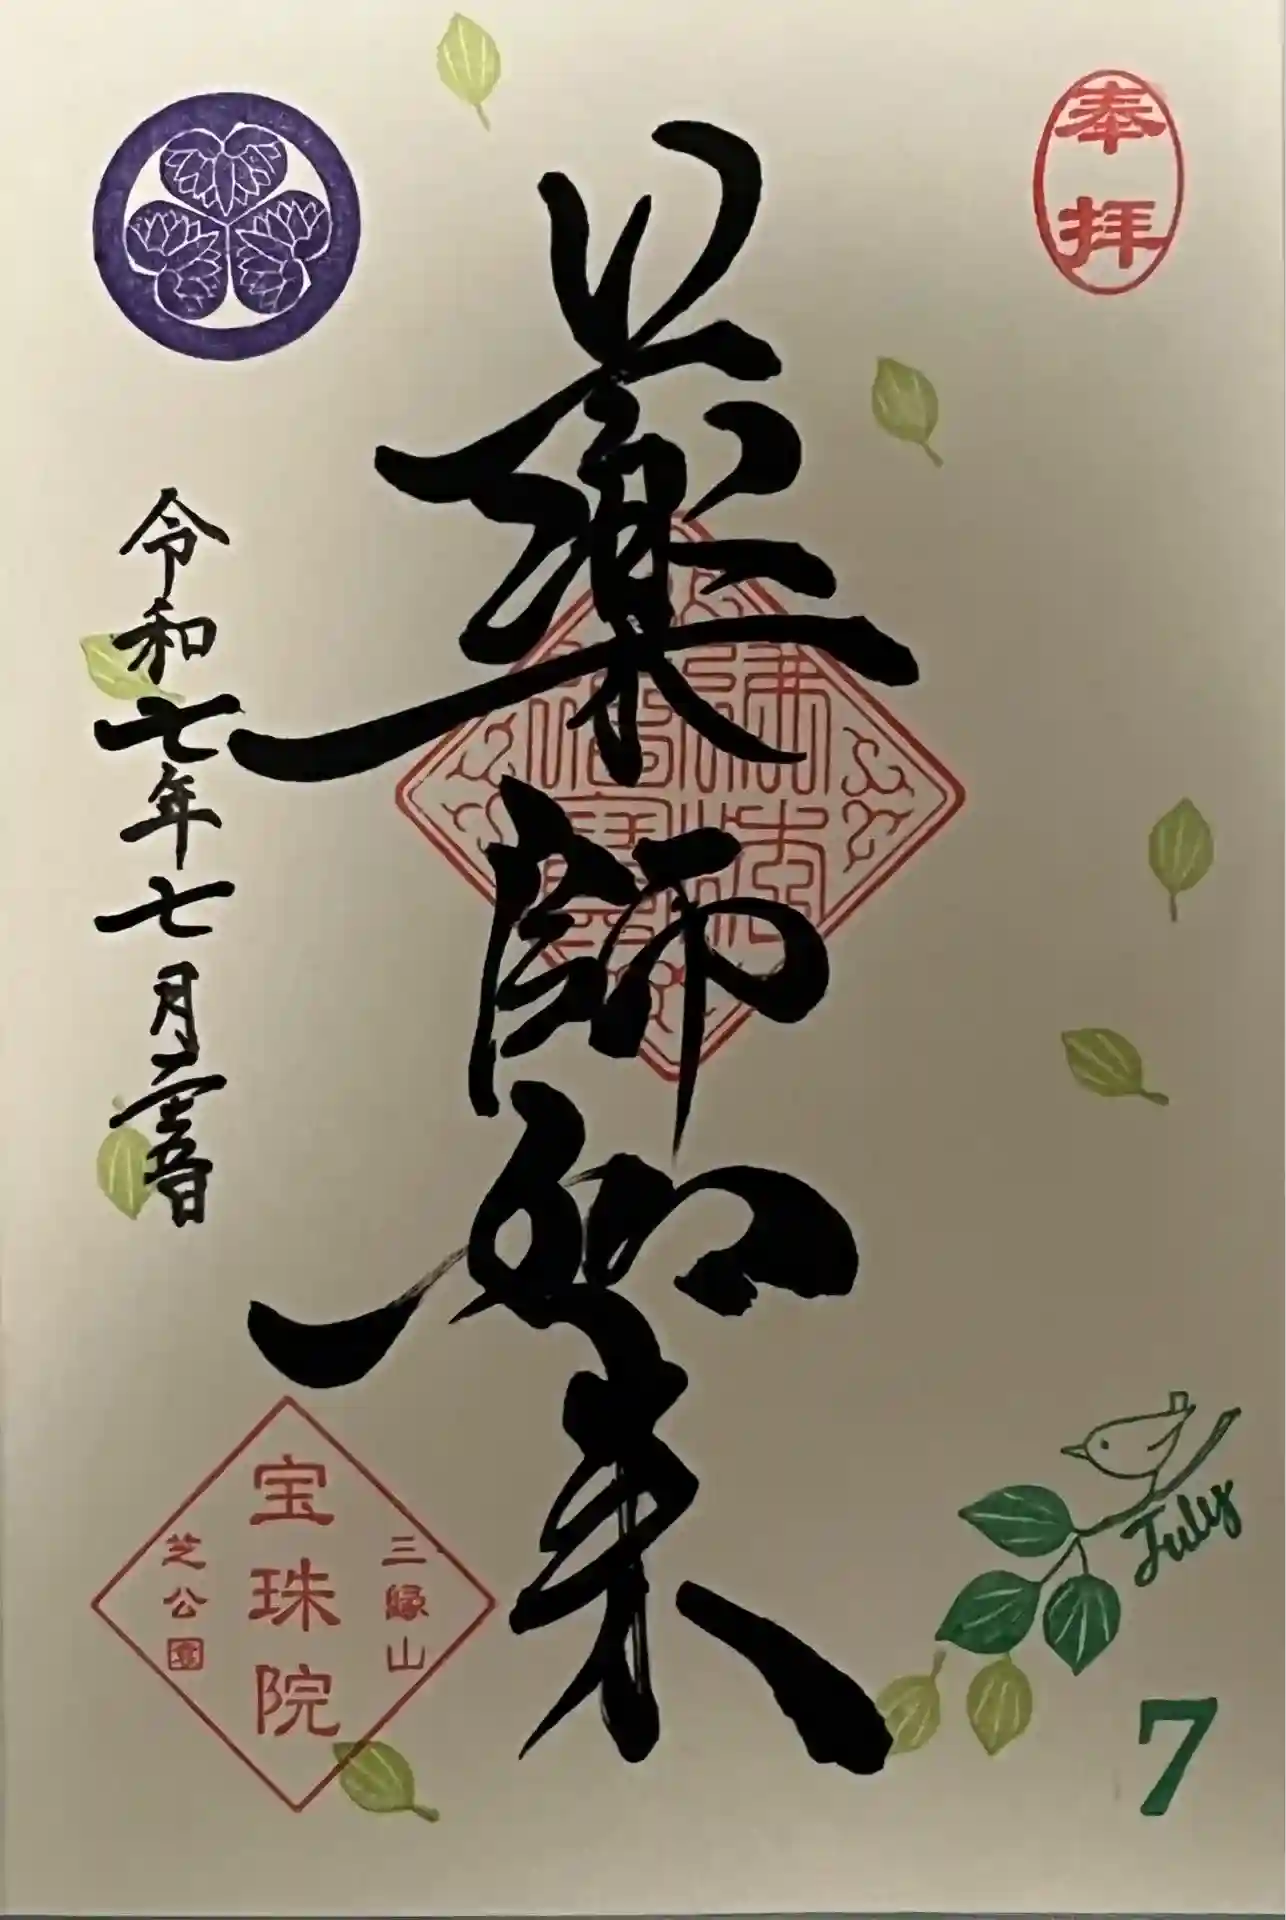 奉拝
薬師如来
令和七年七月二十五日
三縁山
宝珠院
芝公園
July
7